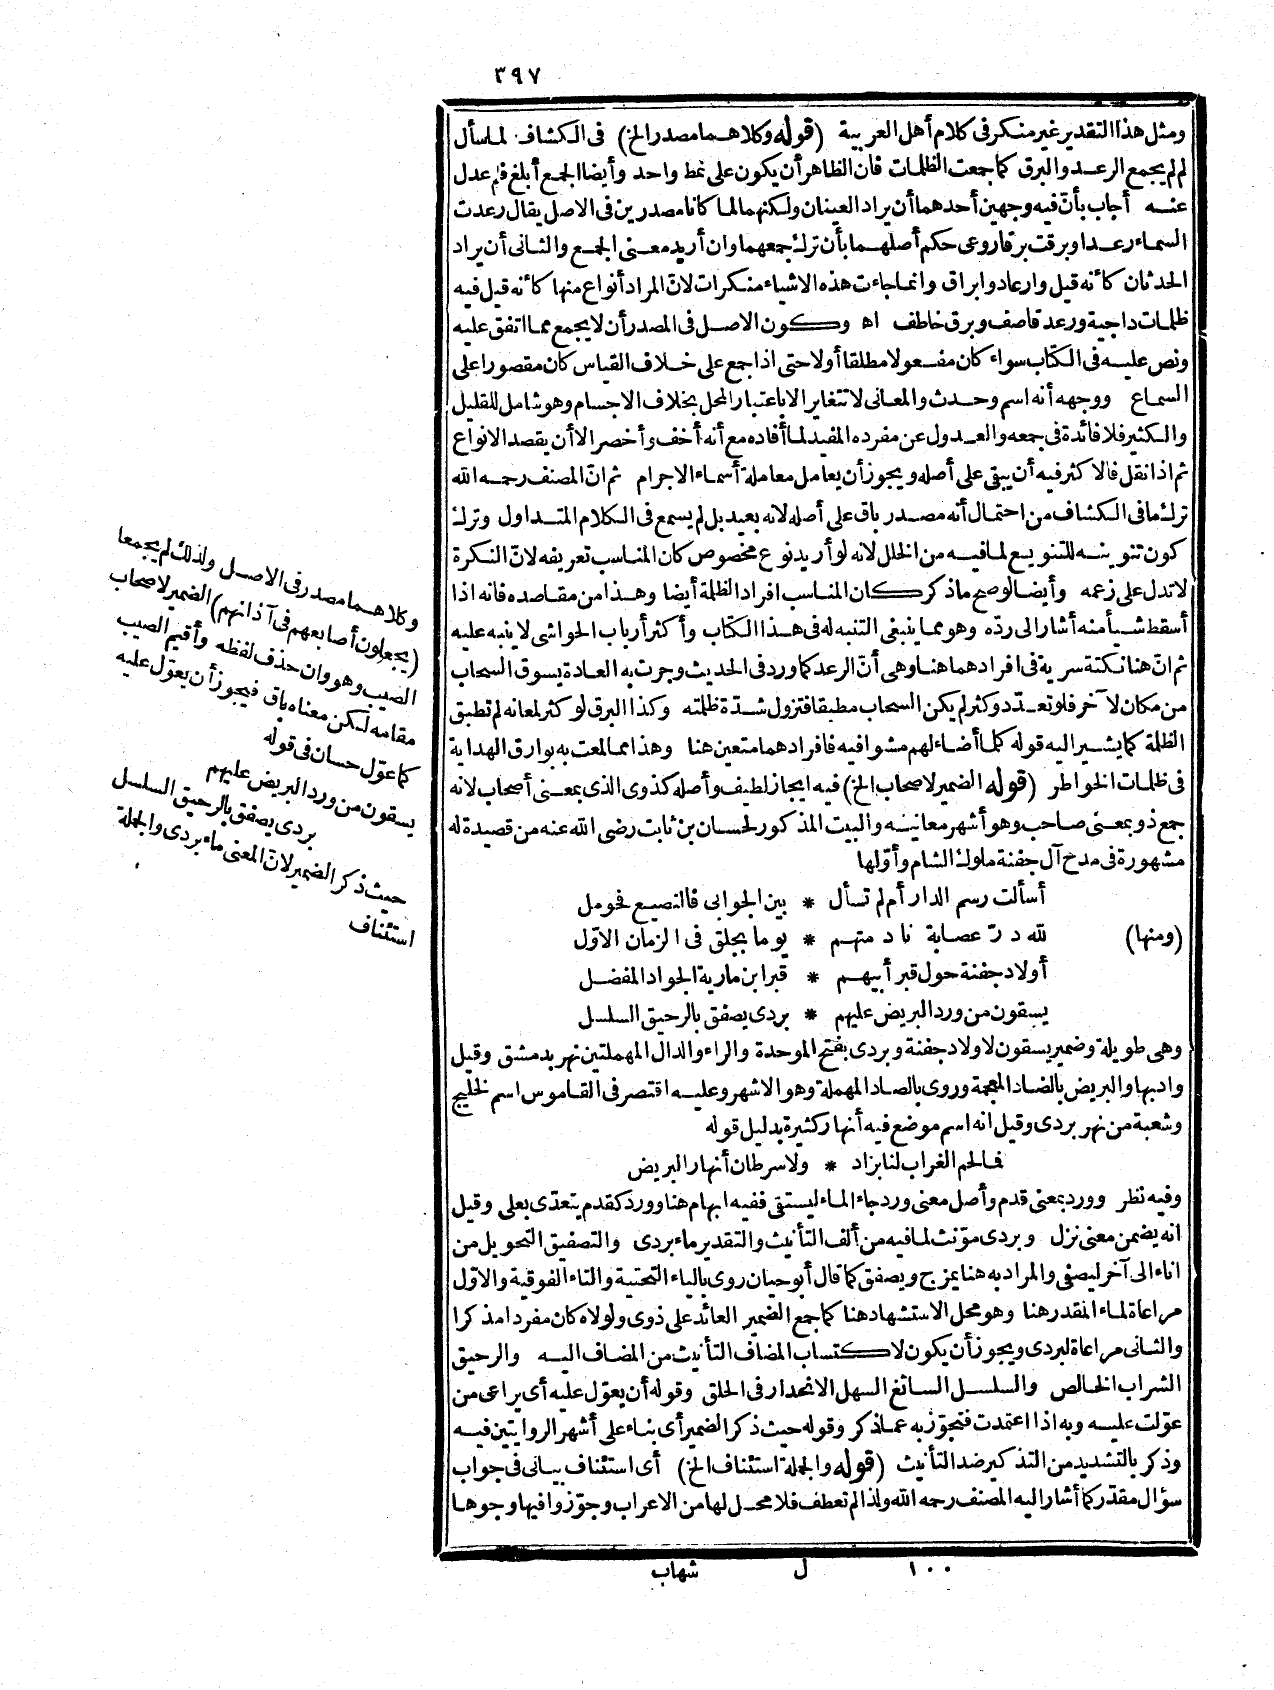 ٣٩٧
ومثل هذا التقدير غير منكر فى كلام أهل العربية (قوله وكلاهما مصدر الخ) فى الكشاف لما سأل
لم لم يجمع الرعد والبرق كما جمعت الظلمات فان الظاهر أن يكون على نمط واحد وأيضا الجمع أبلغ فلم عدل
عنه أجاب بأن فيه وجهين أحدهما أن يراد العينان ولكنهما لما كانا مصدرين فى الاصل يقال رعدت
السماء رعدا وبرقت برقا روعى حكم أصلهما بأن ترك جمعهما وان أريد معنى الجمع والثانى أن يراد
الحدثان كأنه قيل وارعاد وابراق وانما جاءت هذه الاشياء منكرات لان المراد أنواع منها كأنه قيل فيه
ظلمات داجية ورعد قاصف وبرق خاطف اه وكون الاصل فى المصدر أن لا يجمع مما اتفق عليه
ونص عليه فى الكتاب سواء كان مفعولا مطلقا أولا حتى اذا جمع على خلاف القياس كان مقصورا على
السماع ووجهه أنه اسم وحدث والمعانى لا تتغاير الا باعتبار المحل بخلاف الاجسام وهو شامل للقليل
والكثير فلا فائدة فى جمعه والعدول عن مفرده المفيد لما أفاده مع أنه أخف وأخصر الا أن يقصد الانواع
ثم اذا نقل فالاكثر فيه أن يبقى على أصله ويجوز أن يعامل معاملة أسماء الاجرام ثم انّ المصنف رحمه الله
ترك ما فى الكشاف من احتمال أنه مصدر باق على أصله لانه بعيد بل لم يسمع فى الكلام المتداول وترك
كون تنوينه للتنويع لما فيه من الخلل لانه لو أريد نوع مخصوص كان المناسب تعريفه لانّ النكرة
لا تدل على زعمه وأيضا لو صح ما ذكر كان المناسب افراد الظلمة أيضا وهذا من مقاصده فانه اذا
أسقط شيأ منه أشار الى ردّه وهو مما ينبغى التنبه له فى هذا الكتاب وأكثر أرباب الحواشى لا ينبه عليه
ثم انّ هنا نكتة سرية فى افرادهما هنا وهى أنّ الرعد كما ورد فى الحديث وجرت به العادة يسوق السحاب
من مكان لآخر فلو تعدّد وكثر لم يكن السحاب مطبقا فتزول شدّة ظلمته وكذا البرق لو كثر لمعانه لم تطبق
الظلمة كما يشير اليه قوله كلما أضاء لهم مشوا فيه فافرادهما متعين هنا وهذا مما لمعت به بوارق الهداية
فى ظلمات الخواطر (قوله الضمير لاصحاب الخ) فيه ايجاز لطيف وأصله كذوى الذى بمعنى أصحاب لانه
جمع ذو بمعنى صاحب وهو أشهر معانيه والبيت المذكور لحسان بن ثابت رضى الله عنه من قصيدة له
مشهورة فى مدح آل جفنة ملوك الشام وأوّلها
أسألت رسم الدار أم لم تسأل * بين الجوابى فالنصيع فحومل
(ومنها) لله درّ عصابة نادمتهم * يوما بجلق فى الزمان الاوّل
أولاد جفنة حول قبر أبيهم * قبر ابن مارية الجواد المفضل
يسقون من ورد البريض عليهم * بردى يصفق بالرحيق السلسل
وهى طويلة وضمير يسقون لاولاد جفنة وبردى بفتح الموحدة والراء والدال المهملتين نهر بدمشق وقيل
واديها والبريض بالضاد المعجمة وروى بالصاد المهملة وهو الاشهر وعليه اقتصر فى القاموس اسم لخليج
وشعبة من نهر بردى وقيل انه اسم موضع فيه أنهار كثيرة بدليل قوله
فما لحم الغراب لنا بزاد * ولا سرطان أنهار البريض
وفيه نظر وورد بمعنى قدم وأصل معنى ورد جاء الماء ليستقى ففيه ايهام هنا وورد كقدم يتعدّى بعلى وقيل
انه يضمن معنى نزل وبردى مؤنث لما فيه من ألف التأنيث والتقدير ماء بردى والتصفيق التحويل من
اناء الى آخر ليصفى والمراد به هنا يمزج ويصفق كما قال أبو حيان روى بالياء التحتية والتاء الفوقية والاوّل
مراعاة لماء المقدر هنا وهو محل الاستشهاد هنا كما جمع الضمير العائد على ذوى ولولاه كان مفردا مذكرا
والثانى مراعاة لبردى ويجوز أن يكون لاكتساب المضاف التأنيث من المضاف اليه والرحيق
الشراب الخالص والسلسل السائغ السهل الانحدار فى الحلق وقوله أن يعوّل عليه أى يراعى من
عوّلت عليه وبه اذا اعتمدت فتجوّز به عما ذكر وقوله حيث ذكر الضمير أى بناء على أشهر الروايتين فيه
وذكر بالتشديد من التذكير ضد التأنيث (قوله والجملة استئناف الخ) أى استئناف بيانى فى جواب
سؤال مقدّر كما أشار اليه المصنف رحمه الله ولذا لم تعطف فلا محل لها من الاعراب وجوّزوا فيها وجوها
وكلاهما مصدر فى الاصل ولذلك لم يجمعا
(يجعلون أصابعهم فى آذانهم) الضمير لاصحاب
الصيب وهو وان حذف لفظه وأقيم الصيب
مقامه لكن معناه باق فيجوز أن يعوّل عليه
كما عوّل حسان فى قوله
يسقون من ورد البريض عليهم
بردى يصفق بالرحيق السلسل
حيث ذكر الضمير لانّ المعنى ماء بردى والجملة
استئناف
١٠٠ ل شهاب